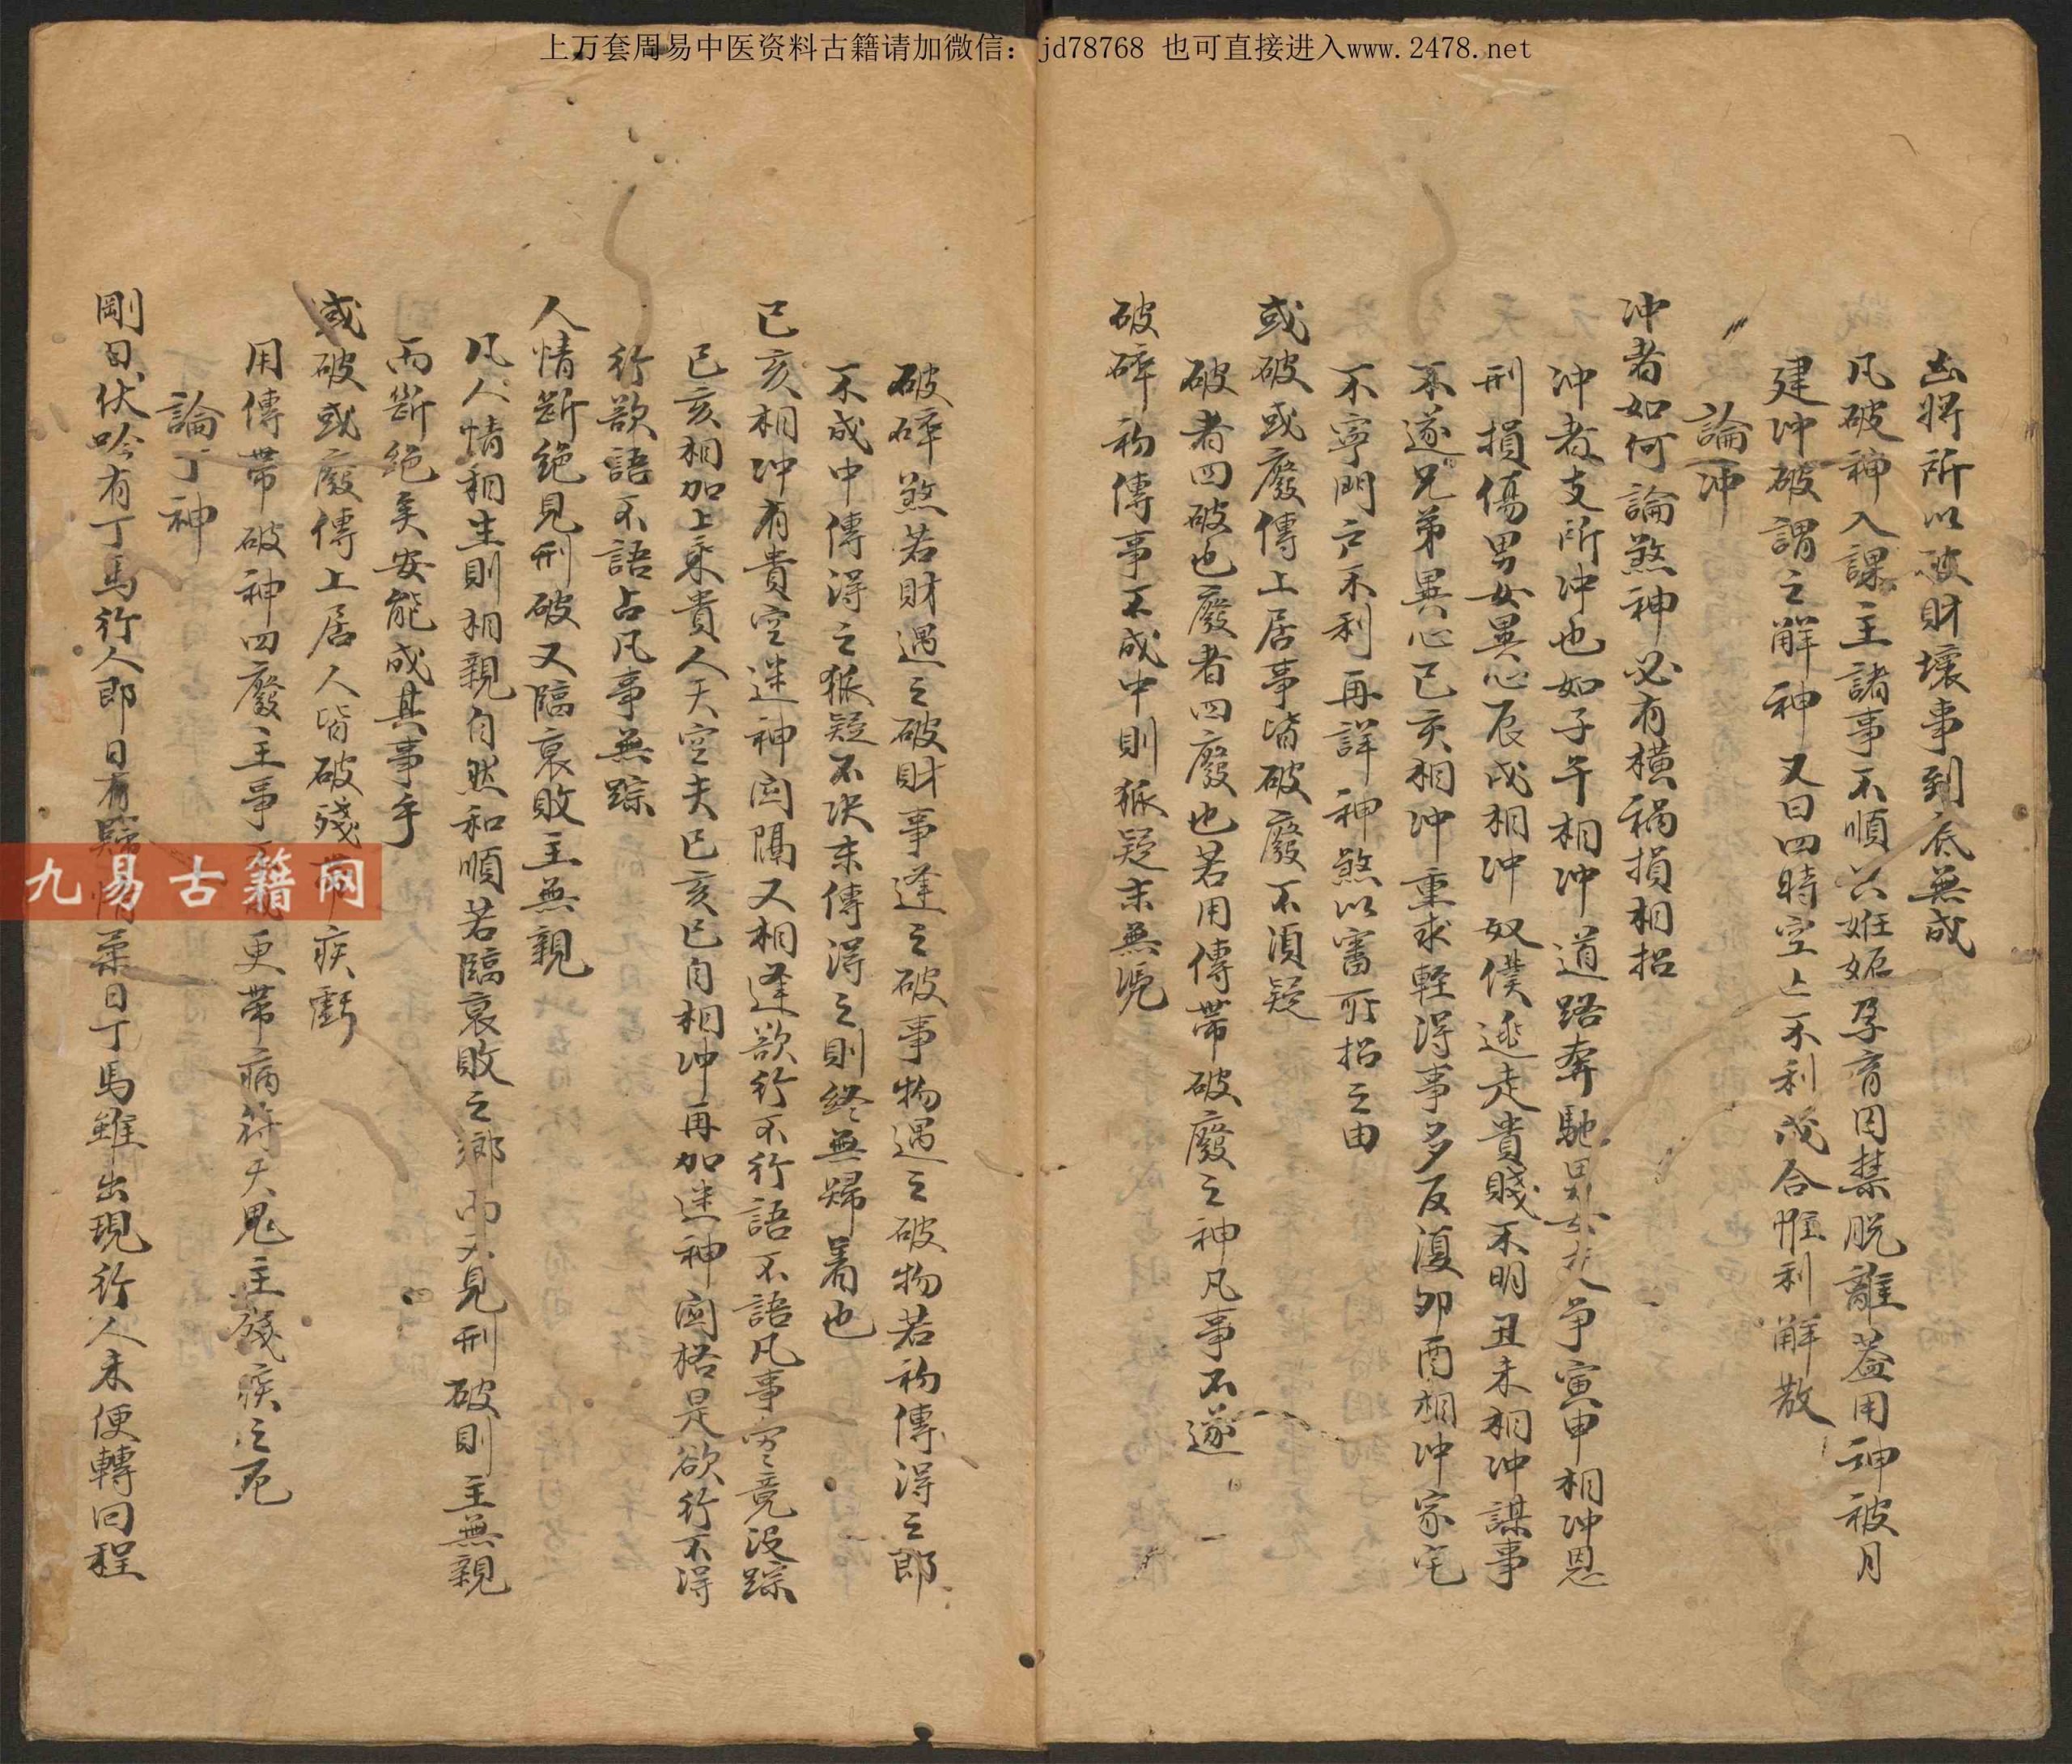 上万套周易中医资料古籍请加微信：jd78768 也可直接进入www.2478.net
凶將所以破財壞事到底無成
凡破神入課主諸事不順只姙娠孕育囚禁脱離蓋用神被月
建冲破謂之解神又曰四時空亡不利成合惟利解散
論冲
冲者如何論煞神必有橫禍損相招
冲者支所冲也如子午相冲道路奔馳男女爭寅申相冲恩
刑損傷男女異心辰戌相冲奴僕逃走貴賤不明丑未相冲謀事
不遂兄弟異心巳亥相冲重求輕得事多反復卯酉相冲家宅
不寧門户不利再詳神煞以審所招之由
或破或廢傳上居事皆破廢不須疑
破者四破也廢者四廢也若用傳帶破廢之神凡事不遂
破碎初傳事不成中則狐疑末無憑
破碎煞若財遇之破財事逢之破事物遇之破物若初傳得之郎
不成中傳得之狐疑不决末傳得之則終無歸着也
巳亥相冲有貴空迷神関隔又相逢欲行不行語不語凡事究竟没踪
巳亥相加上乘貴人天空夫巳亥已自相冲再加迷神関格是欲行不得
行欲語不語占凡事無踪
人情斷絶見刑破又臨衰敗主無親
凡人情相生則相親自然和順若臨衰敗之鄉而又見刑破則主無親
而斷絶矣安能成其事乎
或破或廢傳上居人皆破殘疾虧
用傳帶破神四廢主事更帶病符天鬼主殘疾之厄
論丁神
剛日伏吟有丁馬行人郎日有歸情柔日丁馬雖出現行人未便轉回程
九易古籍网